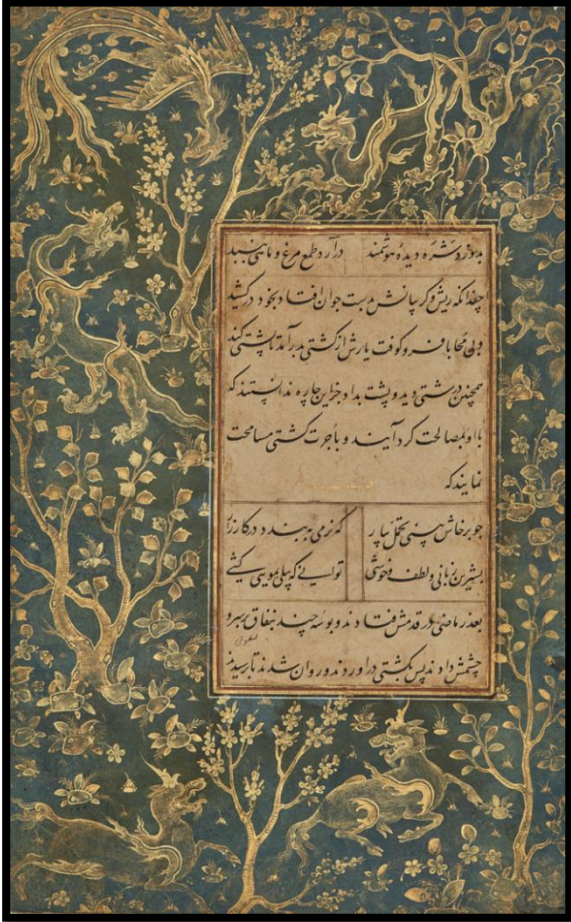 بدوزد شره دیدهٔ هوشمند درآرد طمع مرغ و ماهی ببند
چندانکه ریش و گریبانش بدست جوان افتاد بخود درکشید
و بی محابا فرو کوفت یارش از کشتی بدر آمد تا پشتی کند
همچنین درشتی دید و پشت بداد جز این چاره ندانستند که
با او بمصالحت گرد آیند و باجرت کشتی مسامحت
نمایند که
چو پرخاش بینی تحمل بیار که نرمی ببندد در کارزار
بشیرین زبانی و لطف و خوشی توانی که پیلی بمویی کشی
بعذر ماضی در قدمش فتادند و بوسه چند بنفاق بر سر و
چشمش دادند پس بکشتی درآوردند و روان شدند تا رسیدند